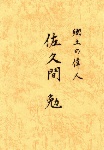 郷土の偉人
佐久間勉